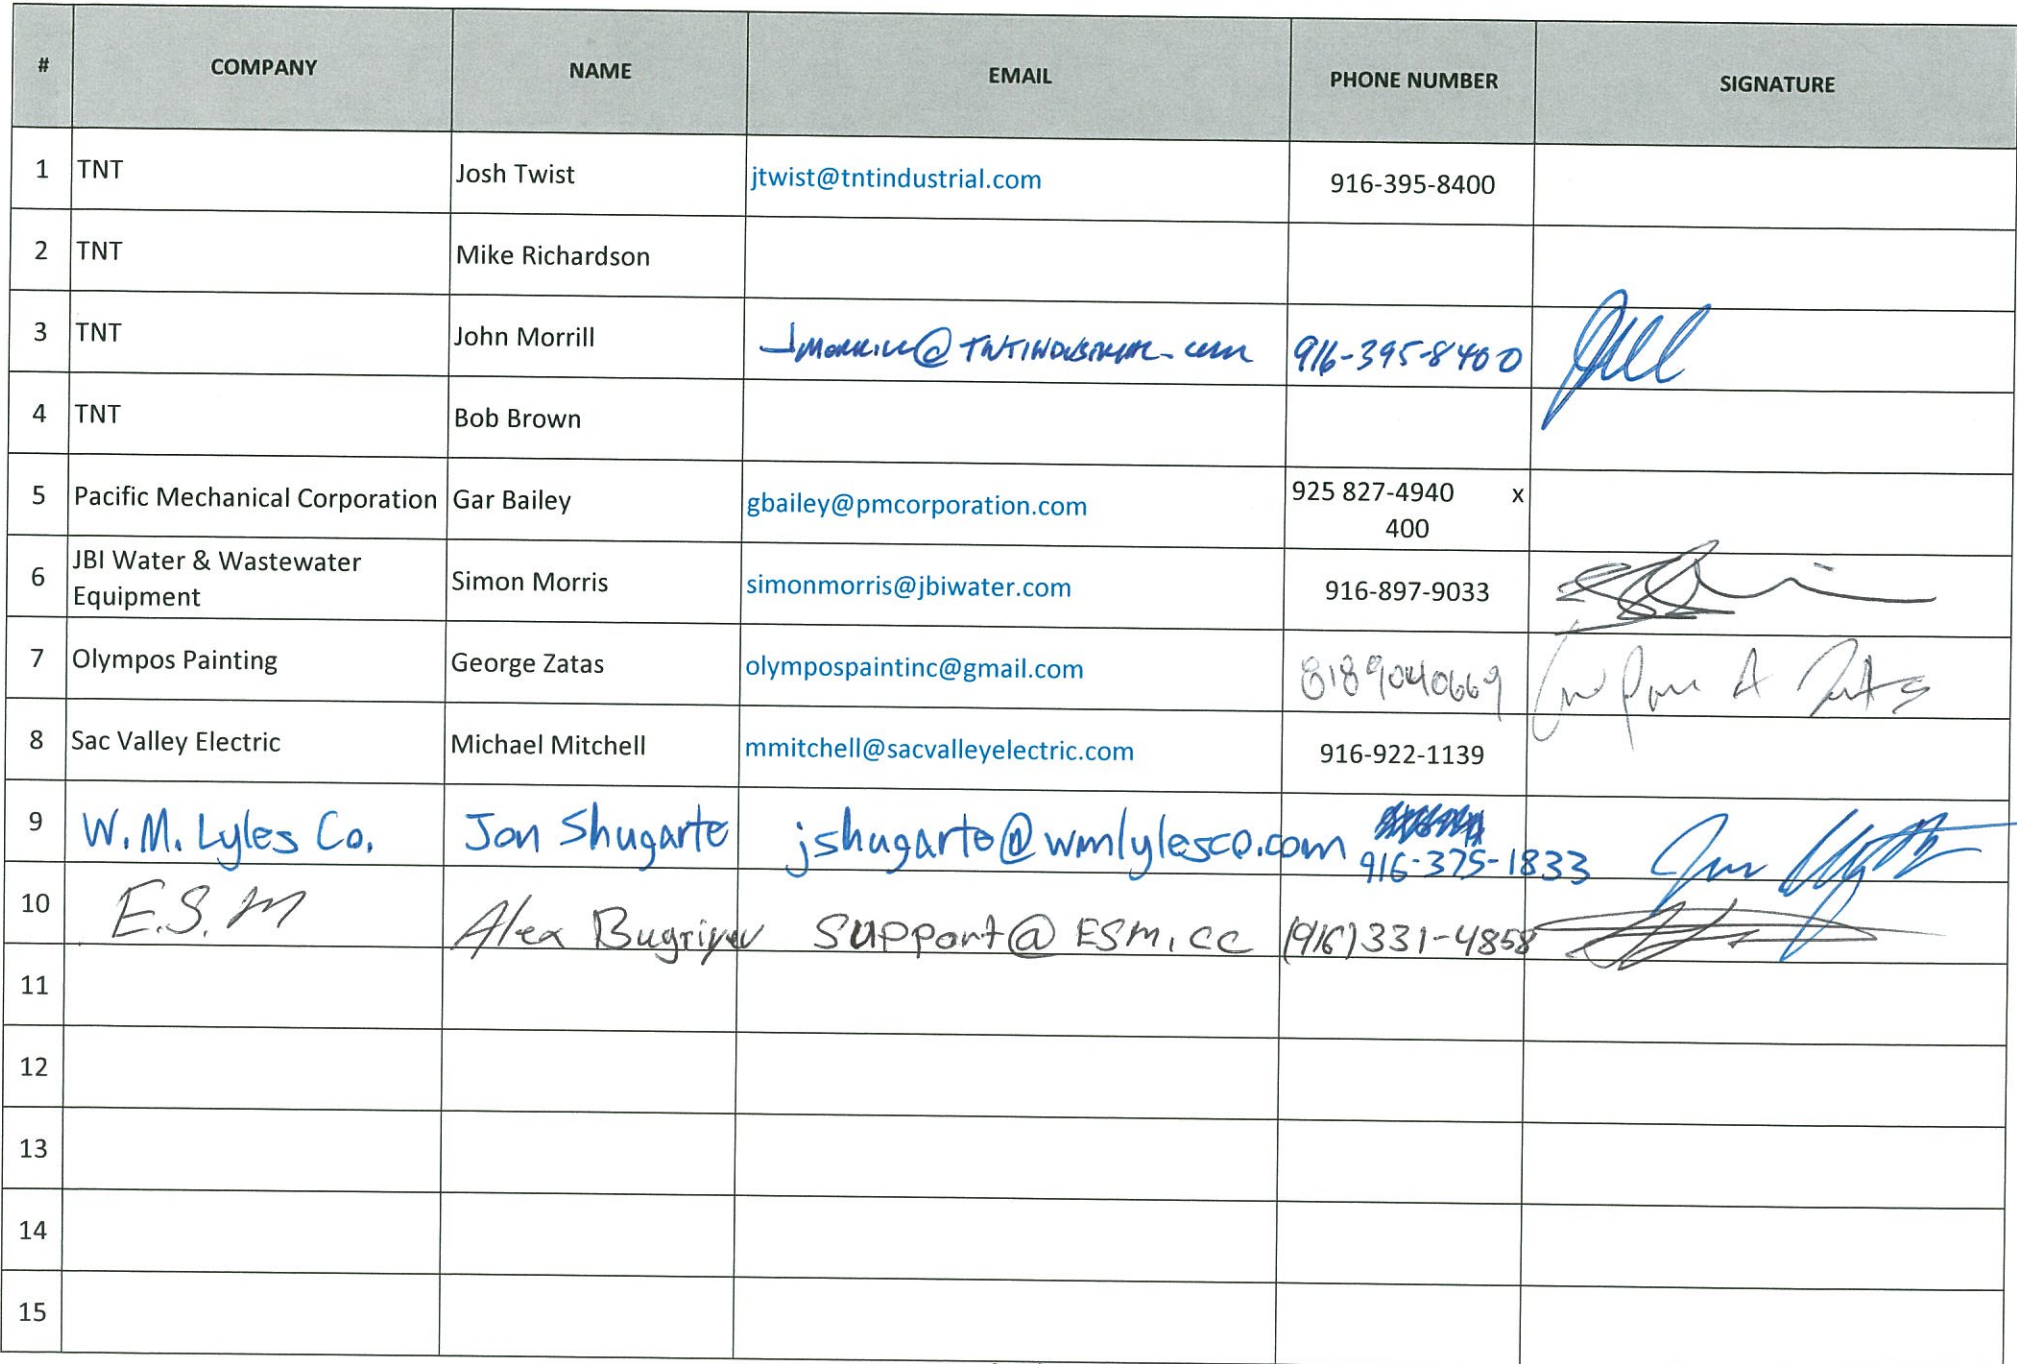 # COMPANY NAME EMAIL PHONE NUMBER SIGNATURE
1 TNT Josh Twist jtwist@tntindustrial.com 916-395-8400
2 TNT Mike Richardson
3 TNT John Morrill Jmorrill@TNTINDUSTRIAL.com 916-395-8400
4 TNT Bob Brown
5 Pacific Mechanical Corporation Gar Bailey gbailey@pmcorporation.com 925 827-4940 x
400
6 JBI Water & Wastewater
Equipment Simon Morris simonmorris@jbiwater.com 916-897-9033
7 Olympos Painting George Zatas olympospaintinc@gmail.com 8189040669
8 Sac Valley Electric Michael Mitchell mmitchell@sacvalleyelectric.com 916-922-1139
9 W.M. Lyles Co. Jon Shugarte jshugarte@wmlylesco.com 916-375-1833
10 E.S.M Alex support@ESM.CC (916)331-4858
11
12
13
14
15